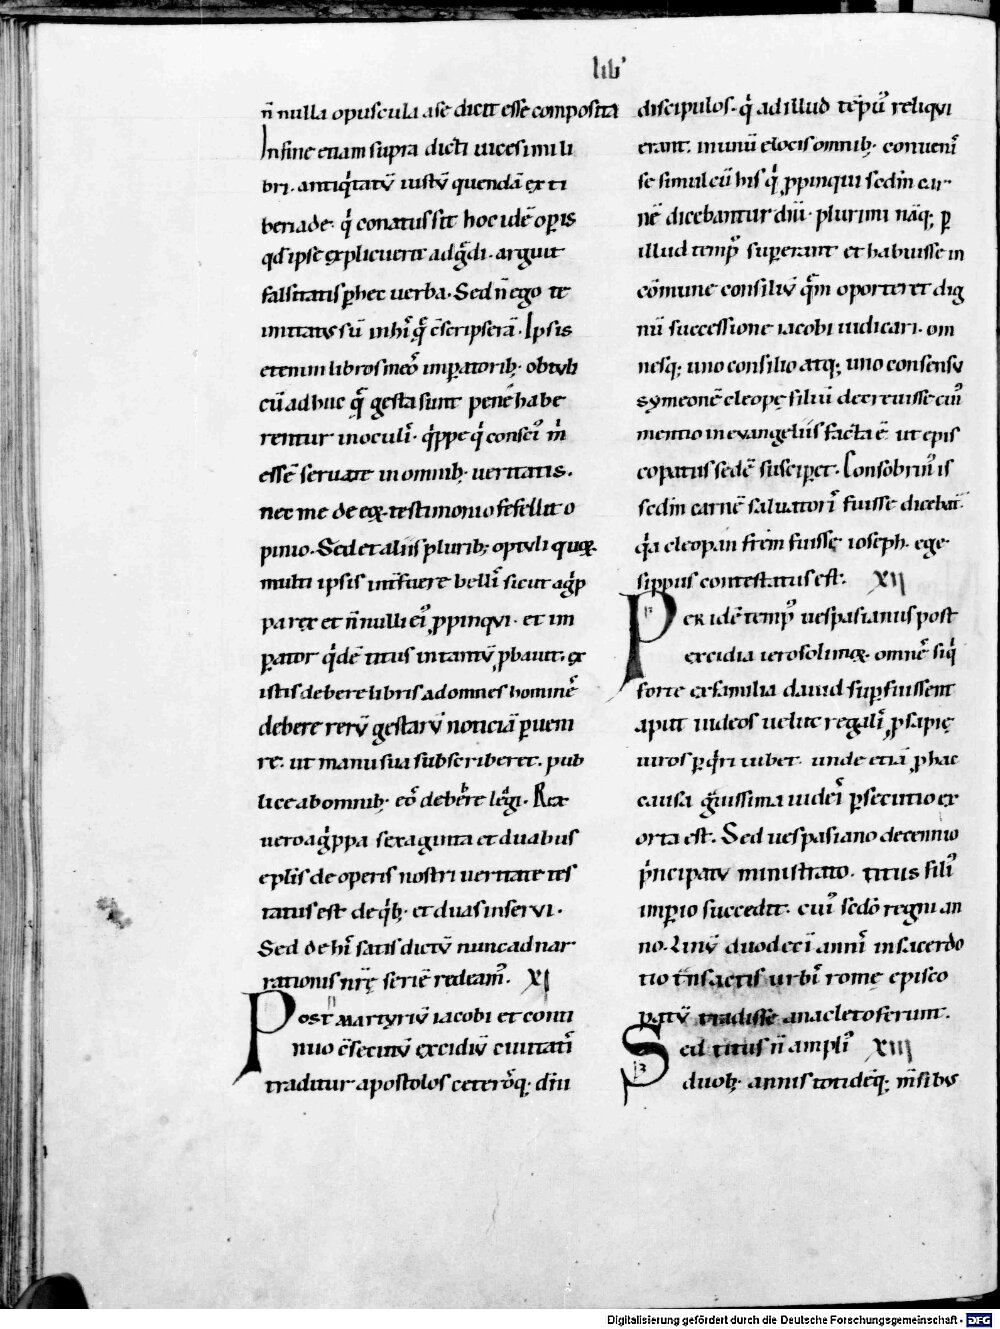 lib'
n̄ nulla opuscula a se dicit esse composita
In fine etiam supra dicti uicesimi li
bri. antiq̇tatū iustū quendā ex ti
beriade. q̇ conatus sit hoc idē oꝑis
qđ ipse explicuerit adg̃di. arguit
falsitatis ꝑ hec uerba. Sed n̄ ego te
imitatus sū in hı̄ q̄ c̄scripserā. Ipsis
etenim libros meoꝰ imꝑatorib; obtuli
cū adhuc q̄ gesta sunt pene habe
rentur in oculı̄. q̇ppe q̇ conscıꝰ m̍
essē seruate in omnib; ueritatis.
nec me de eoꝝ testimonio fefellit o
pinio. Sed et aliis plurib; optuli quoꝝ
multi ipsis inť fuere bellı̄ sicut ag̍p
pa rex et n̄nulli eıꝰ ꝓpinqui. et im
ꝑator q̇dē titus in tantū ꝓbauit. ex
istis debere libris ad omnes hominē
debere rerū gestarū noticiā ꝑueni
re. ut manu sua subscriberet. pub
lice ab omnib; eoꝰ debere legi. Rex
uero ag̍ppa sexaginta et duabus
eplis de operis nostri ueritate tes
tatus est de q̇b; et duas inserui.
Sed de hı̄ satis dictū nunc ad nar
rationis nr̄ę seriē redeamꝰ. XI
Post martyriū iacobi et conti
nuo c̄secutū excidiū ciuitatı̄
traditur apostolos ceteroꝰq; dn̄i
discipulos. q̇ ad illud tēpꝰ reliqui
erant. in unū e locis omnib; conuenı̄
se simul cū his q̇ ꝓpinqui sedm̄ car
nē dicebantur dn̄i. plurimi nāq; ꝑ
illud tempꝰ suꝑerant et habuisse in
cōmune consiliū q̄m oporteret dig
nū successione iacobi iudicari. om
nesq; uno consilio atq; uno consensu
symeonē cleopę filiū decreuisse cuiꝰ
mentio in euangeliis facta ē. ut epis
copatus sedē susciꝑet. Consobrinꝰ is
sedm̄ carnē saluatorı̄ fuisse dicebat̄.
q̍a cleopan frēm fuisse ioseph. ege
sippus contestatus est. XII
Per idē tempꝰ uespasianus post
excidia ierosolimoꝝ. omnē siq̇
forte ex familia dauid suꝑfuissent
aput iudeos uelut regalı̄ ꝓsapię
uiros ꝑq̇ri iubet. unde etiā ꝓ hac
causa g̃uissima iudeı̄ ꝑsecutio ex
orta est. Sed uespasiano decennio
p̍ncipatu ministrato. titus filiꝰ
imꝑio succedit. cuiꝰ sedō regni an
no. Linū duodecı̄ annı̄ in sacerdo
tio t̄nsactis urbı̄ romę episco
patū tradisse anacleto ferunt.
Sed titus n̄ ampliꝰ XIII
duob; annis totidēq; m̄sibus
Digitalisierung gefördert durch die Deutsche Forschungsgemeinschaft - DFG